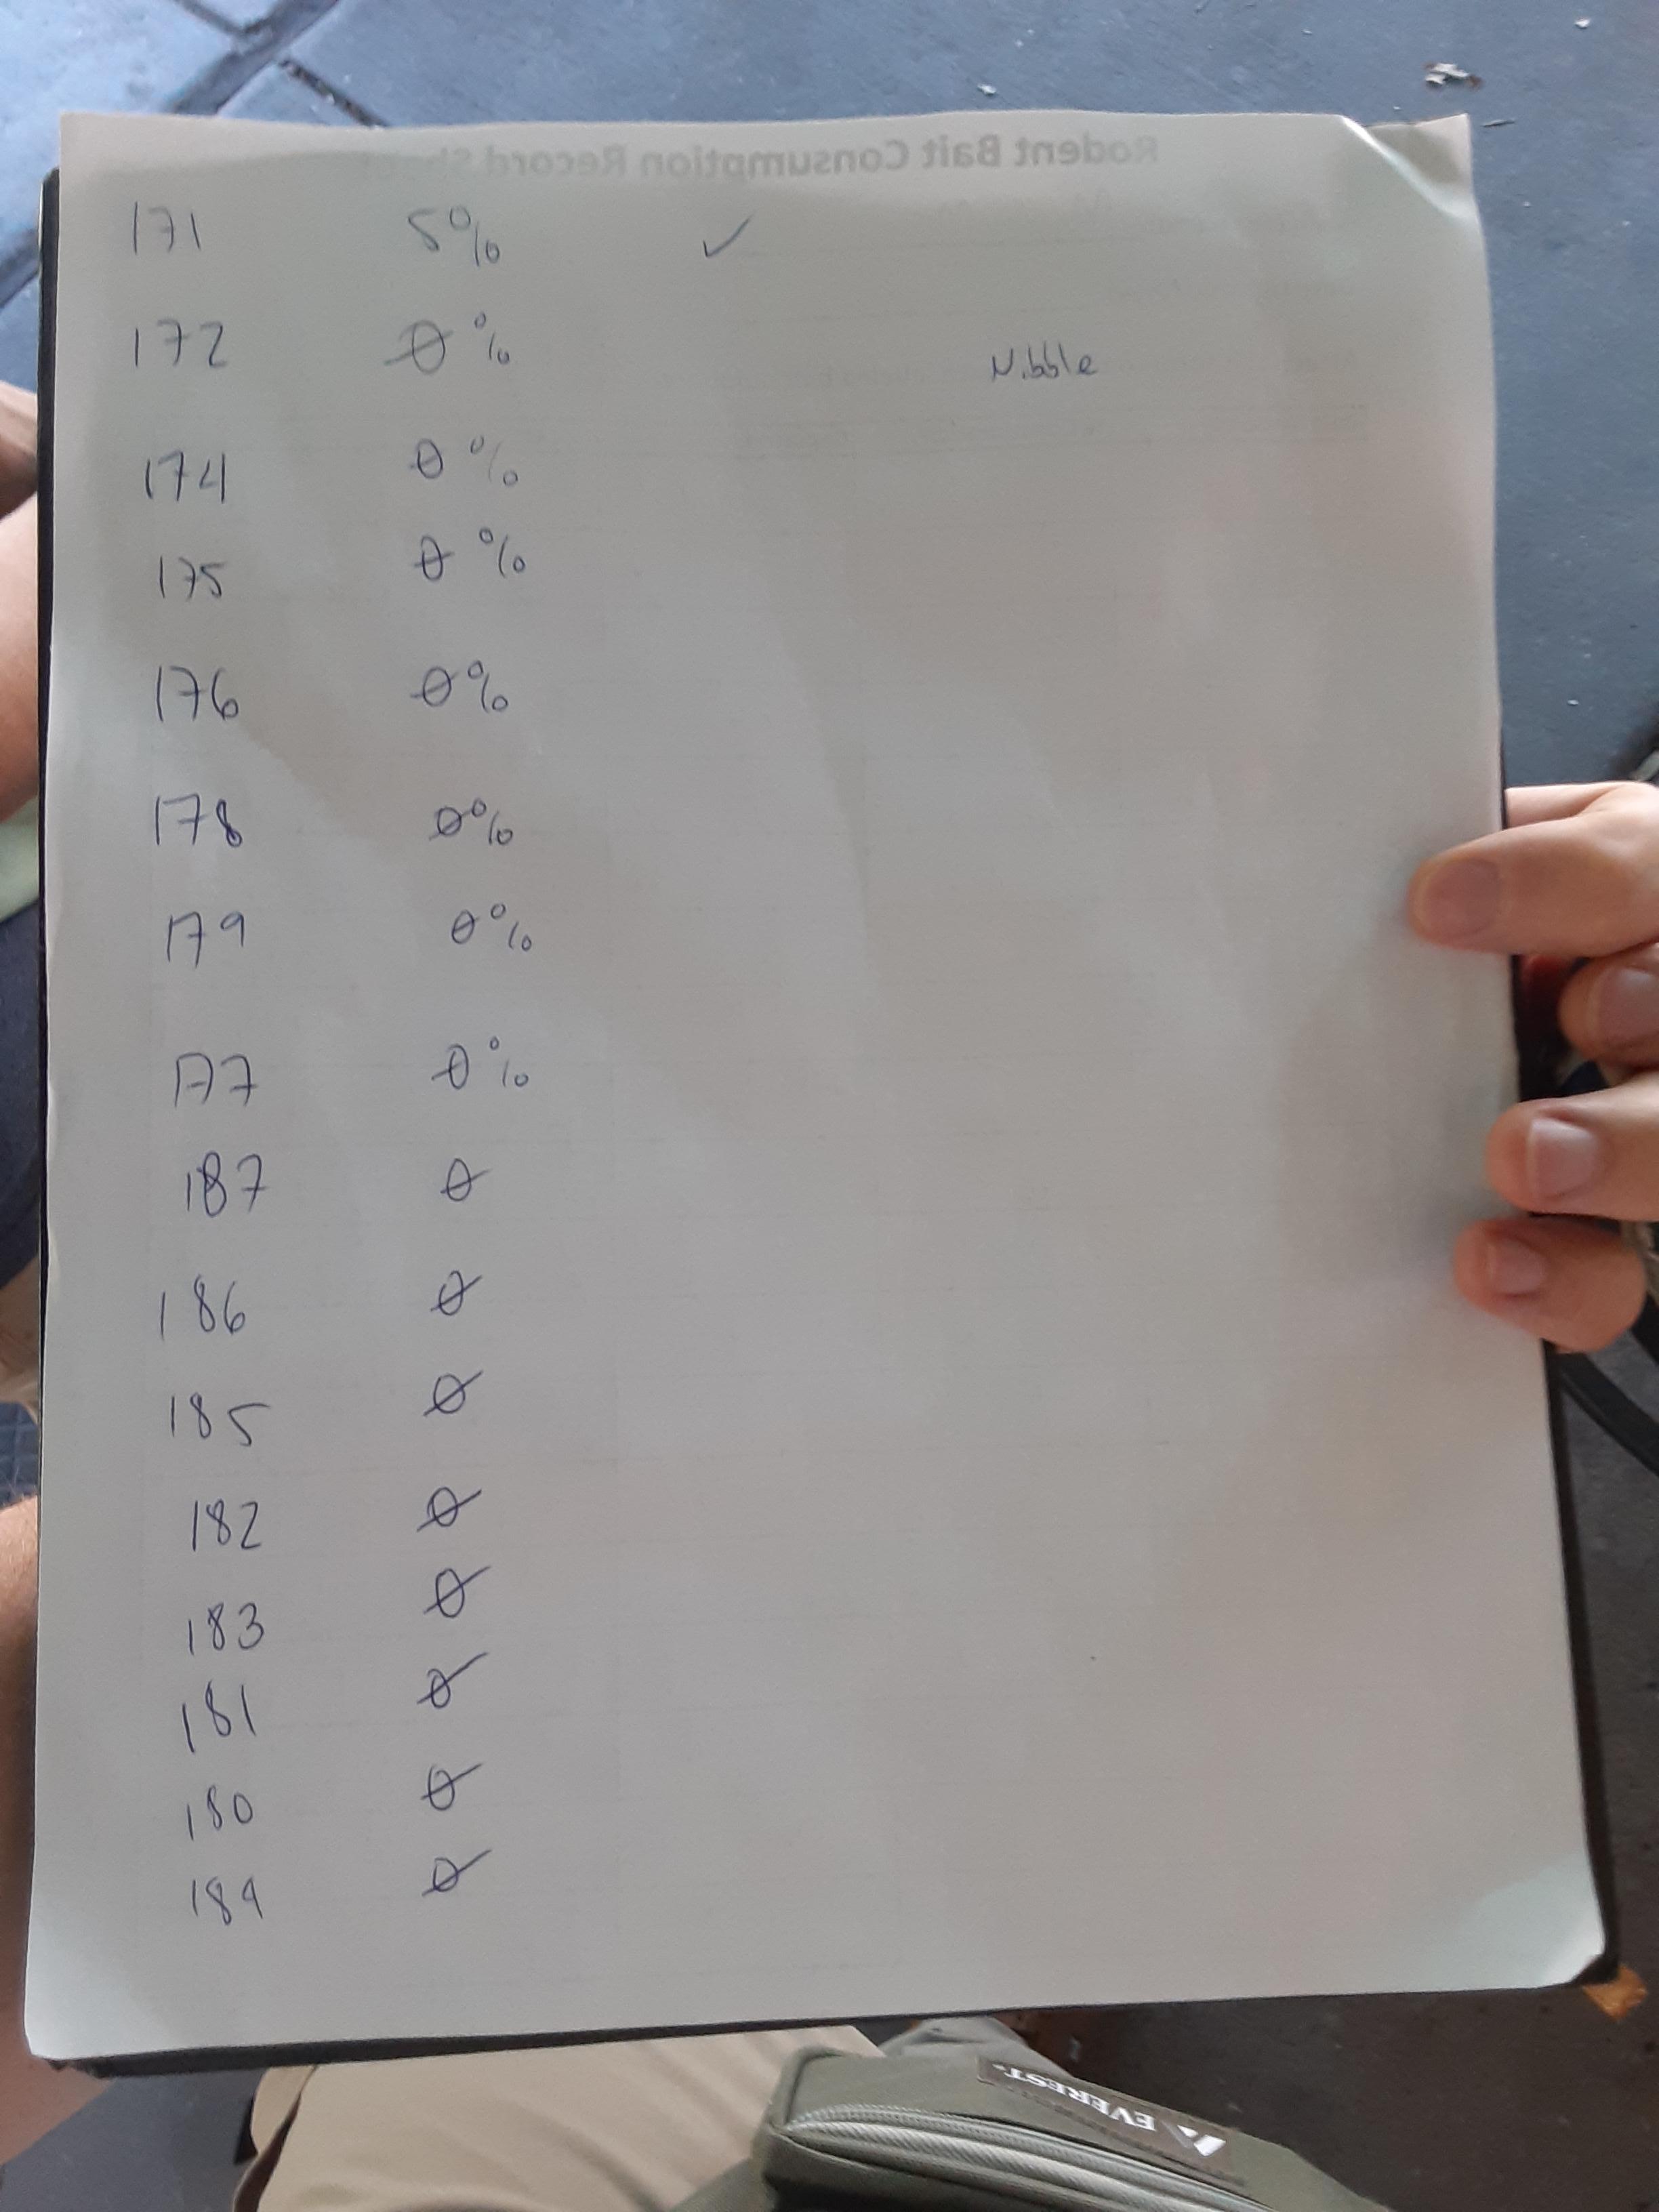 Rodent Bait Consumption Record
171 5% ✓
172 0% Nibble
174 0%
175 0%
176 0%
178 0%
179 0%
177 0%
187 0
186 0
185 0
182 0
183 0
181 0
180 0
184 0
EVEREST